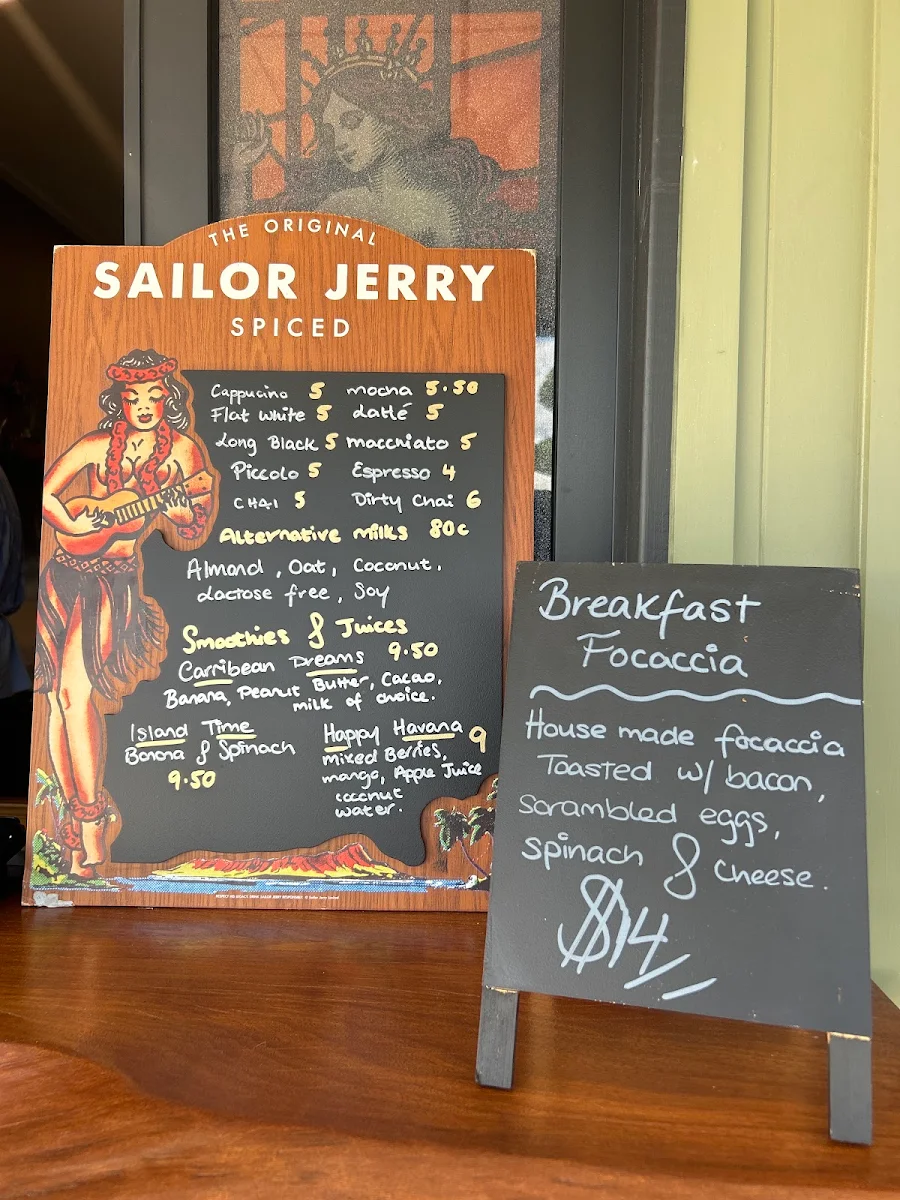 THE ORIGINAL
SAILOR JERRY
SPICED
Cappucino 5 mocha 5.50
Flat White 5 latté 5
Long Black 5 macchiato 5
Piccolo 5 Espresso 4
CHAI 5 Dirty Chai 6
Alternative milks 80c
Almond, Oat, Coconut,
Lactose free, Soy
Smoothies & Juices
Carribean Dreams 9.50
Banana, Peanut Butter, Cacao,
milk of choice.
Island Time
Banana & Spinach
9.50
Happy Havana 9
mixed Berries,
mango, Apple Juice
coconut
water.
Breakfast
Focaccia
House made focaccia
Toasted w/ bacon,
scrambled eggs,
spinach & cheese.
$14